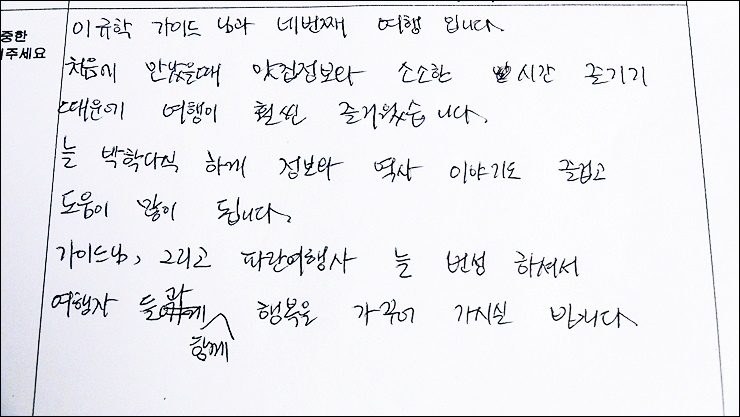 중한
해주세요
이규학 가이드 님과 네번째 여행 입니다.
처음에 만났을때 맛집정보와 소소한 시간 즐기기
때문에 여행이 훨씬 즐거웠습니다.
늘 박학다식 하게 정보와 역사 이야기도 즐겁고
도움이 많이 됩니다.
가이드님, 그리고 파란여행사 늘 번성 하셔서
여행자 들과 함께 행복을 가꾸어 가시실 바랍니다